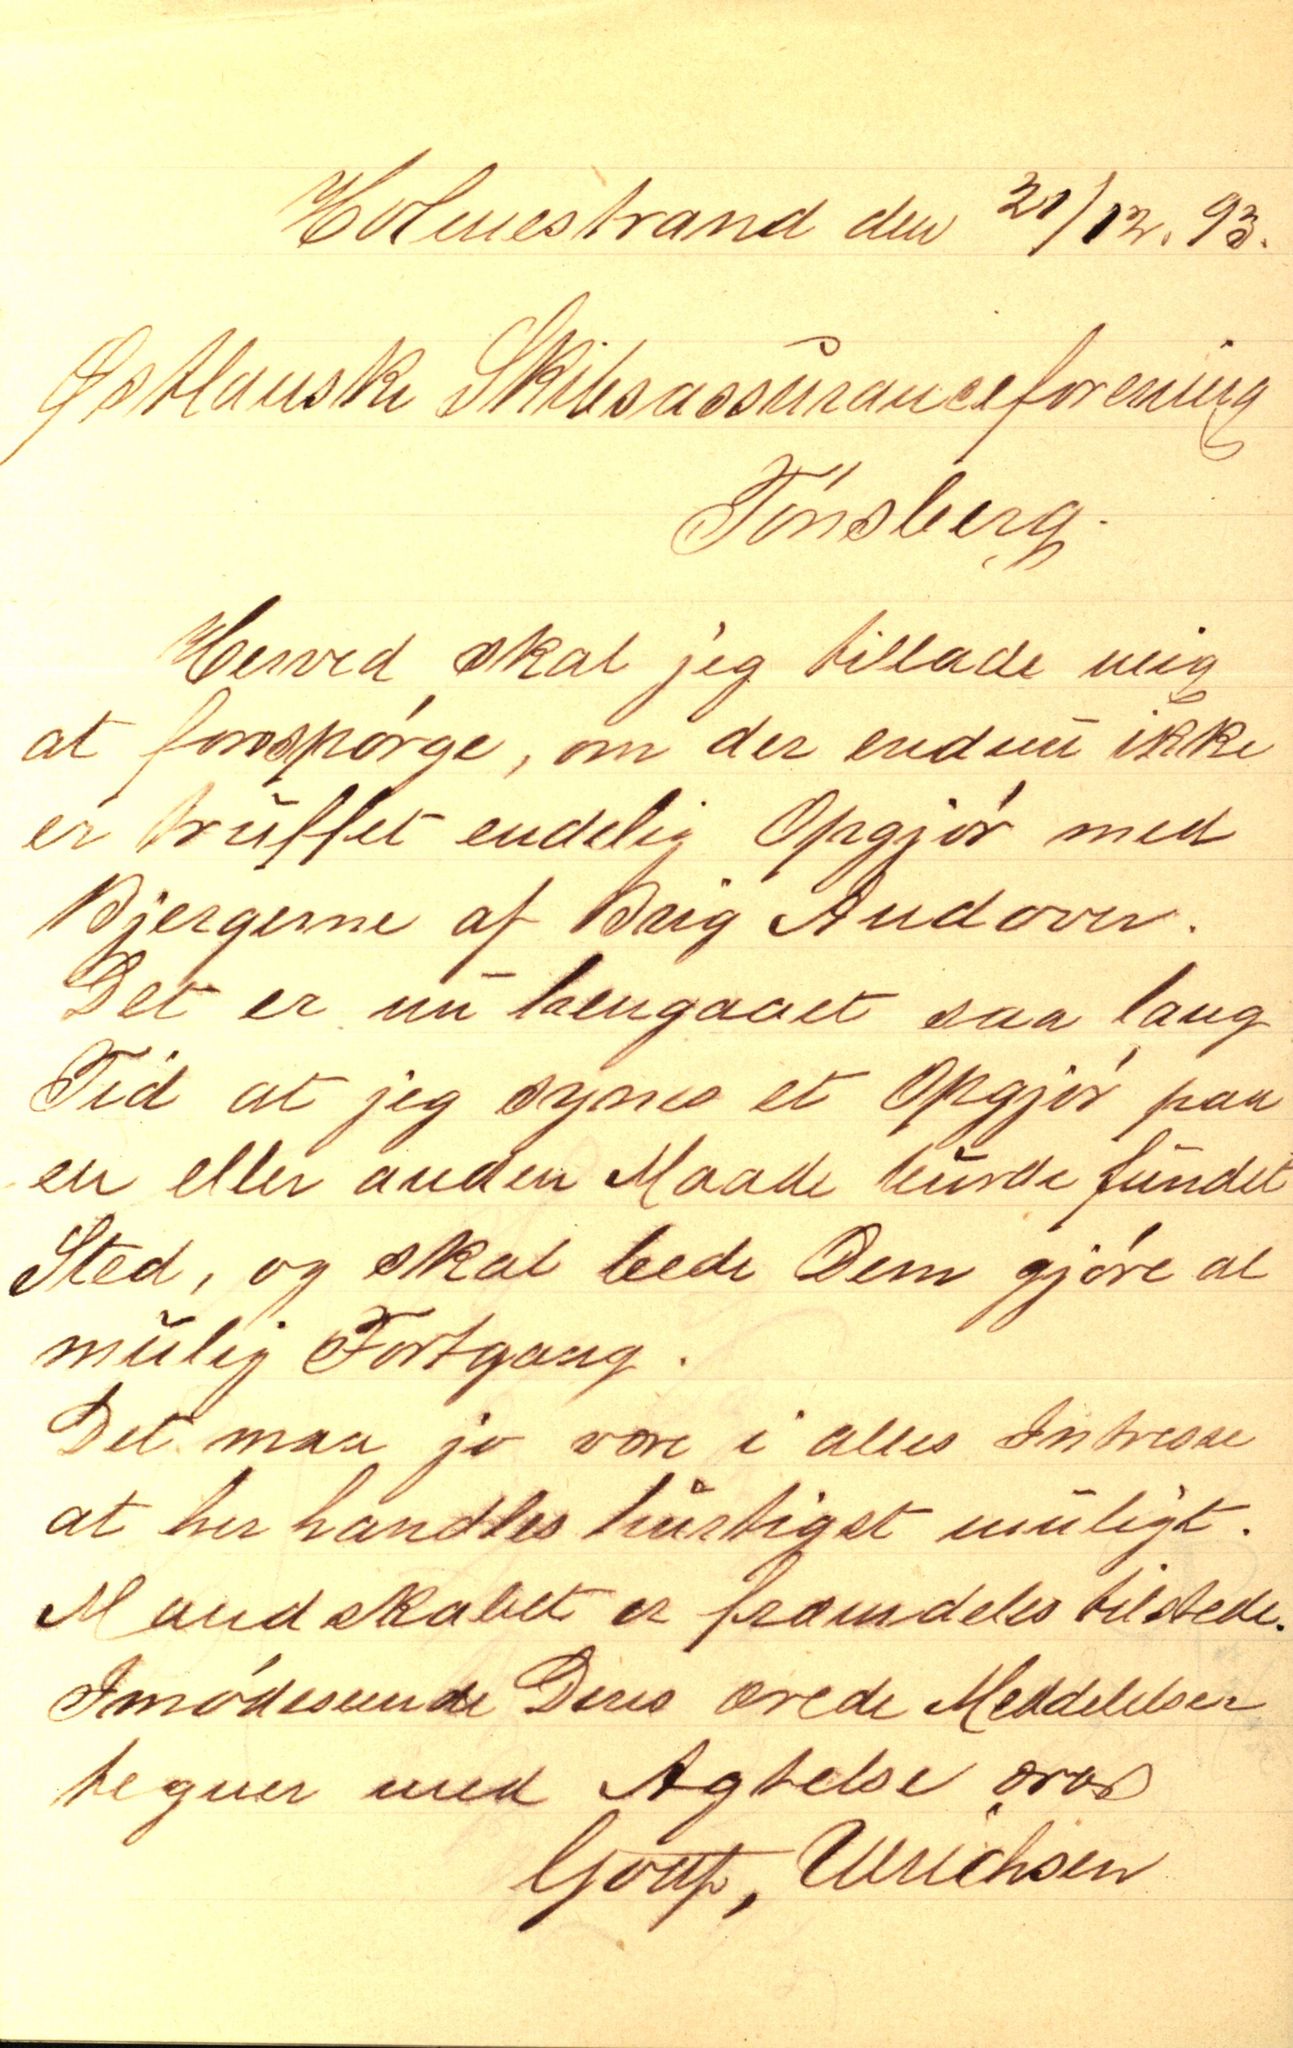 Holmestrand den 21/12. 93.
Østlanske Skibsassuranceforening
Tønsberg.
Herved skal jeg tillade mig
at forespørge, om der endnu ikke
er truffet endelig Opgjør med
Bjergerne af Brig Andover.
Det er nu hengaaet saa lang
Tid at jeg synes et Opgjør paa
en eller anden Maade burde fundet
Sted, og skal bede Dem gjøre al
mulig Fortgang.
Det maa jo være i alles Intresse
at her handles hurtigst muligt.
Mandskabet er fræmdeles tilstede.
Imødeseende Deres ærede Meddelelser
tegner med Agtelse ærbd
Ulrichsen